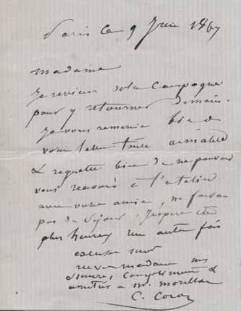 Paris le 9 Juin 1867
Madame
Je reviens de la Campagne
pour y retourner demain.
Je vous remercie bien de
votre lettre toute aimable
& regrette bien de ne pouvoir
vous recevoir à l'atelier
avec votre amie, ne faisant
pas de séjour. J'espère être
plus heureux une autre fois
recevez madame mes
sincères compliments &
amitiés à Mr
C. Corot